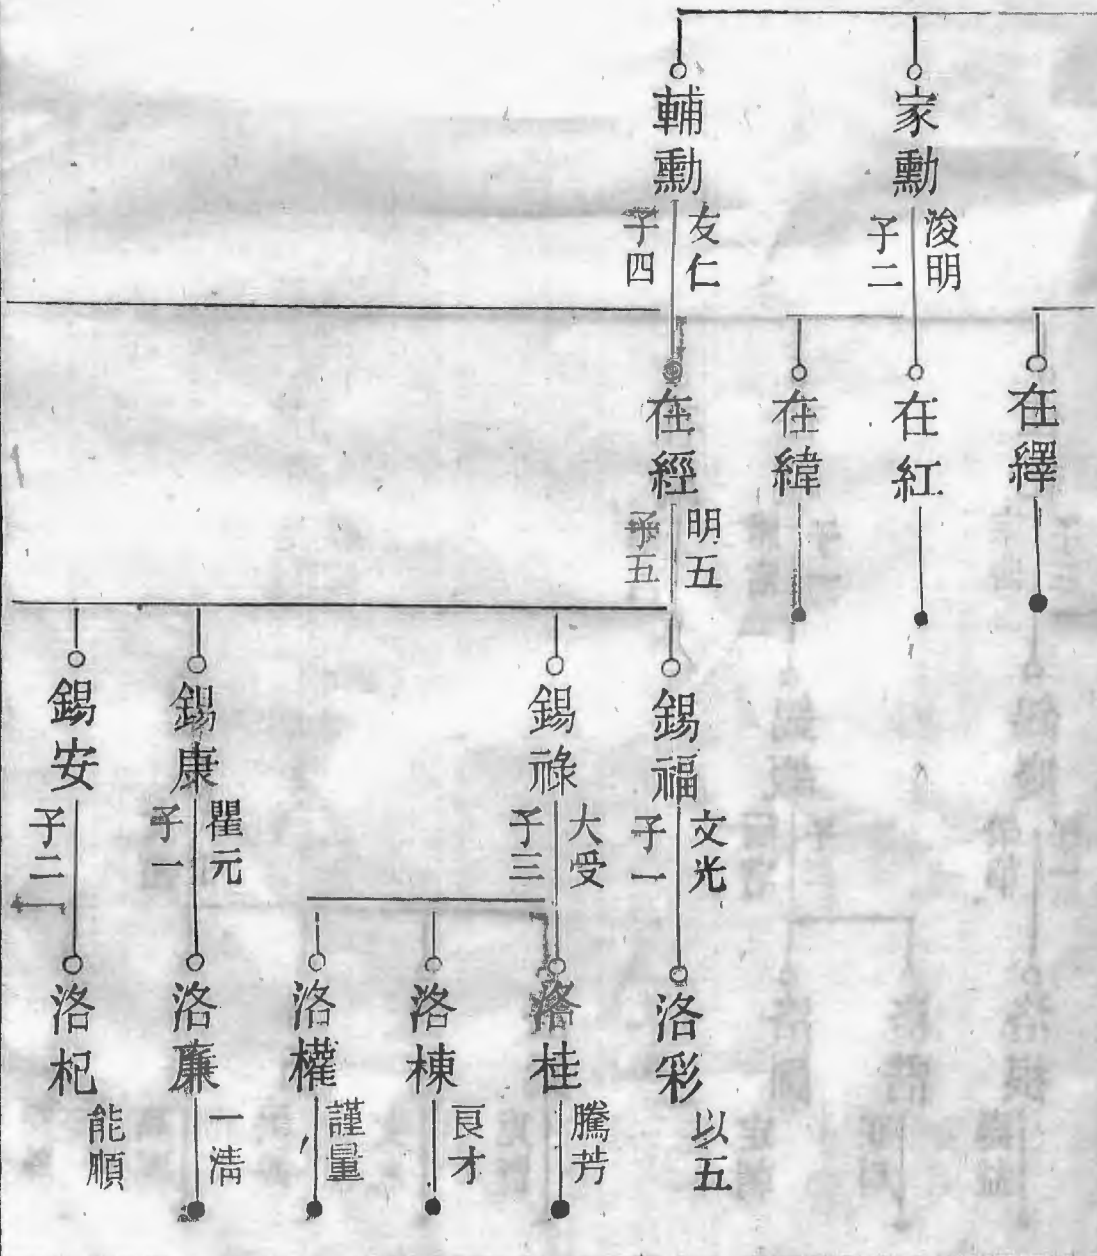 家勳
浚明
子二
輔勳
友仁
子四
在繹
在紅
在緯
在經
明五
子五
錫福
文光
子一
錫祿
大受
子三
錫康
瞿元
子一
錫安
子二
洛彩
以五
洛桂
騰芳
洛棟
良才
洛權
謹量
洛廉
一清
洛杞
能順